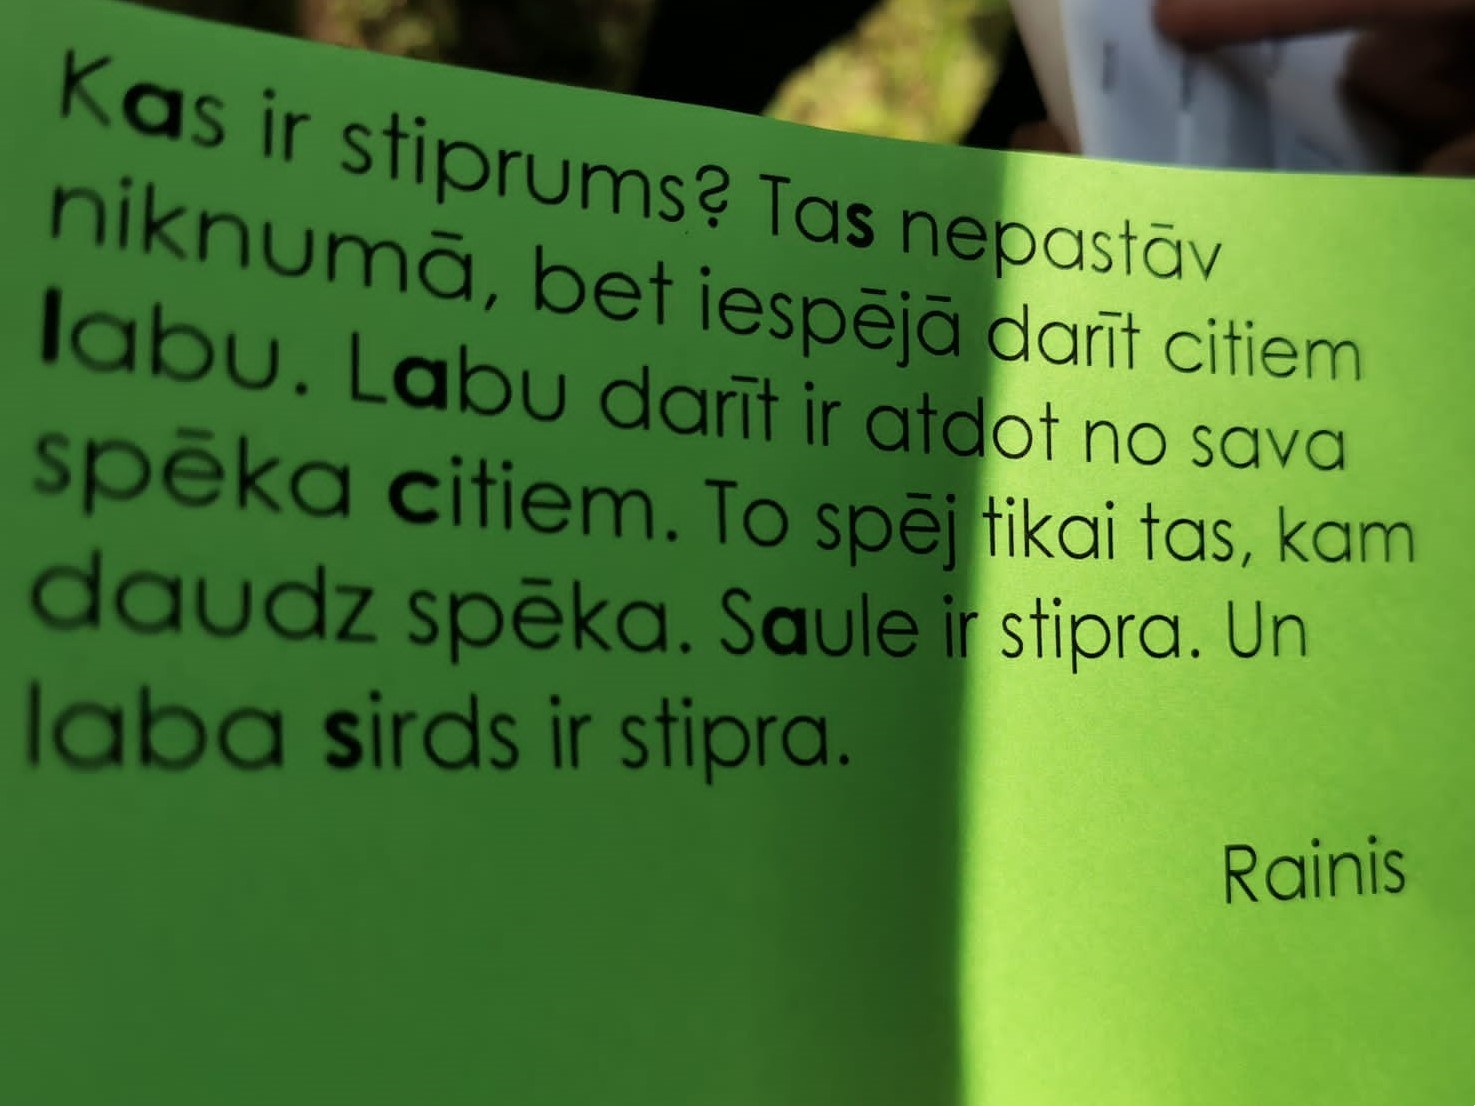 Kas ir stiprums? Tas nepastāv
niknumā, bet iespējā darīt citiem
labu. Labu darīt ir atdot no sava
spēka citiem. To spēj tikai tas, kam
daudz spēka. Saule ir stipra. Un
laba sirds ir stipra.
Rainis